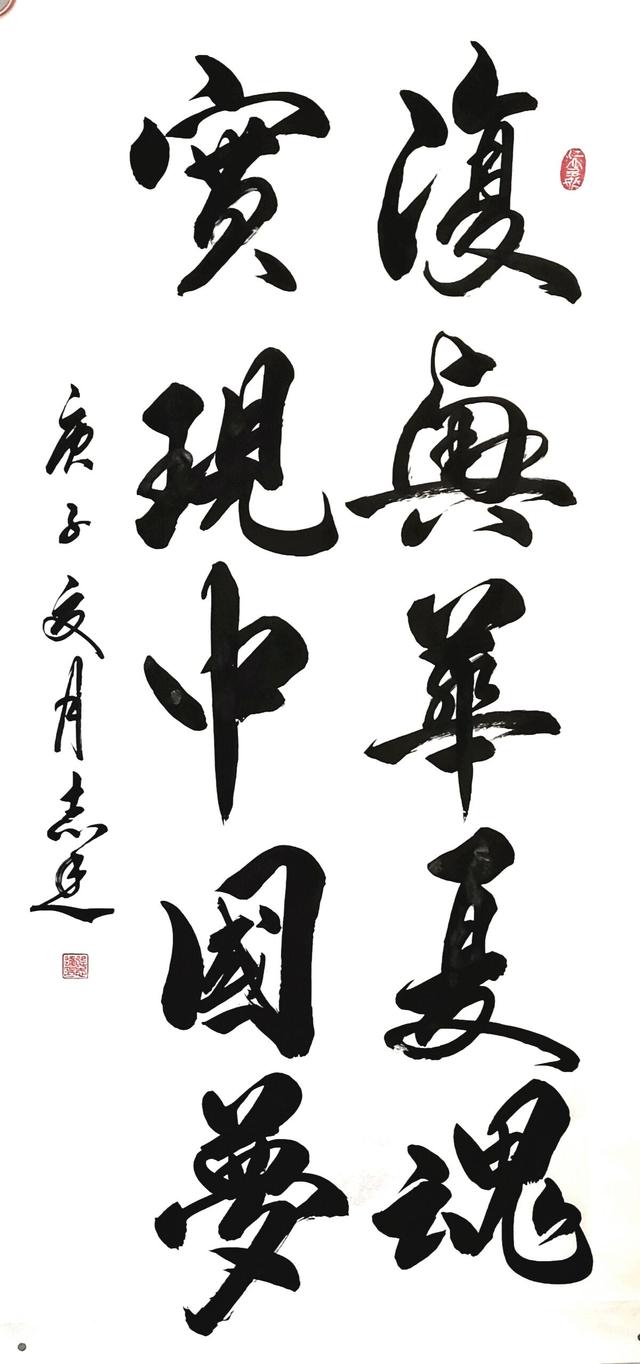 復興華夏魂
實現中國夢
庚子文月志建